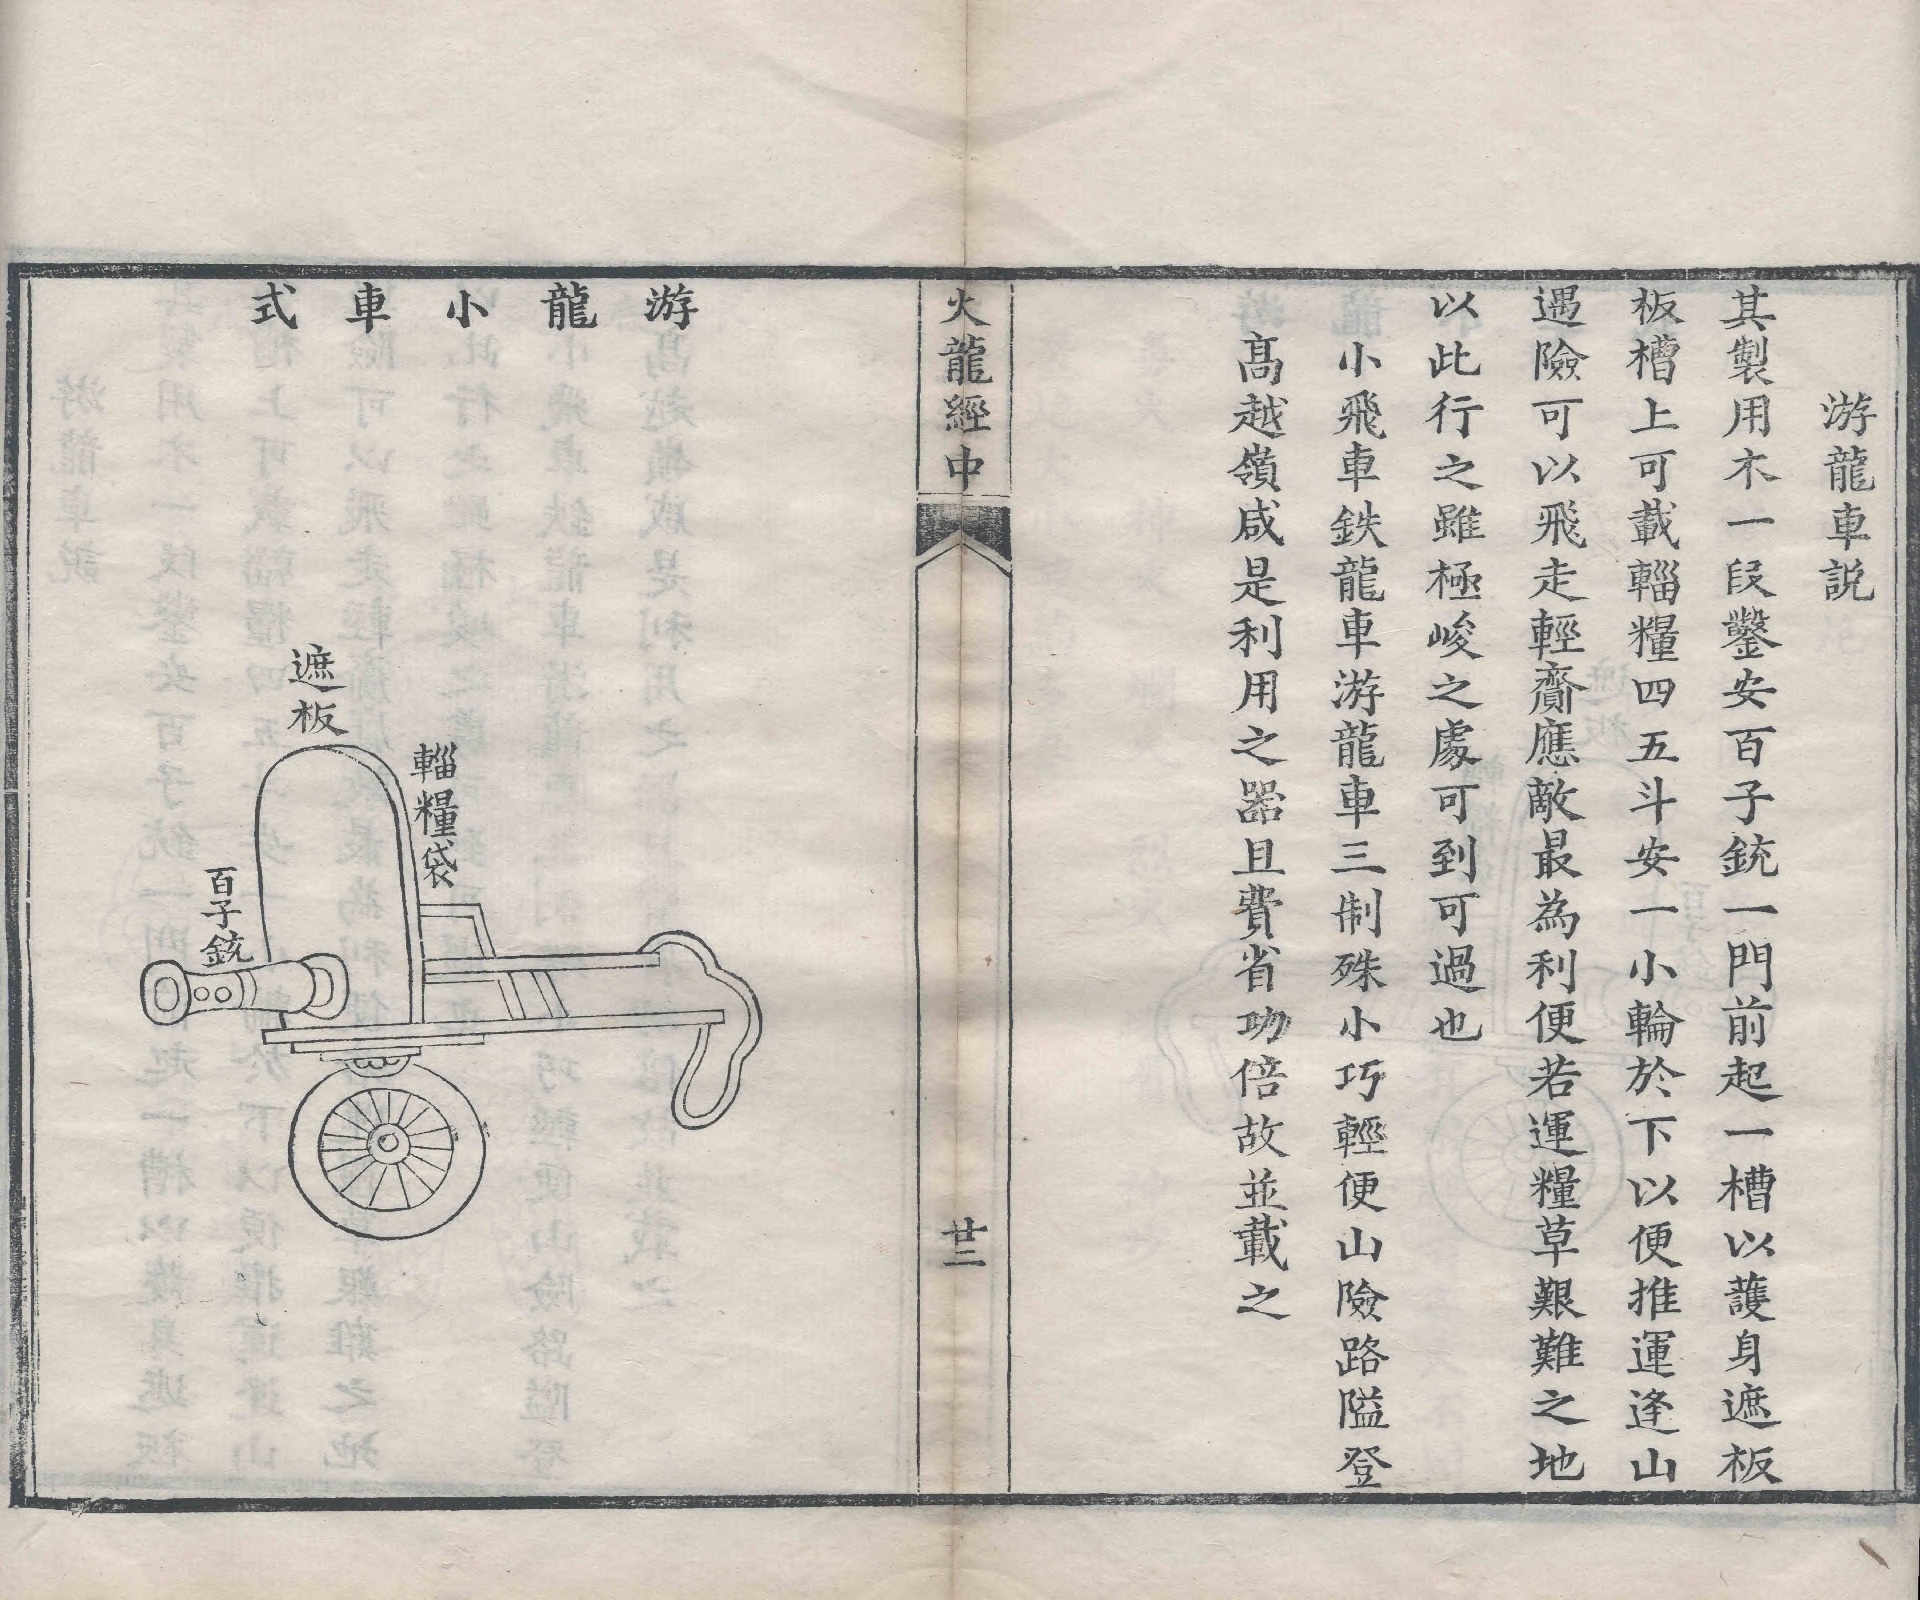 游龍車説
其製用木一段鑿安百子銃一門前起一槽以護身遮板
板槽上可載輜糧四五斗安一小輪於下以便推運逢山
遇險可以飛走輕齎應敵最為利便若運糧草艱難之地
以此行之雖極峻之處可到可過也
小飛車鉄龍車游龍車三制殊小巧輕便山險路隘登
高越嶺咸是利用之器且費省功倍故並載之
火龍經中
廿二
游龍小車式
遮板
輜糧袋
百子銃